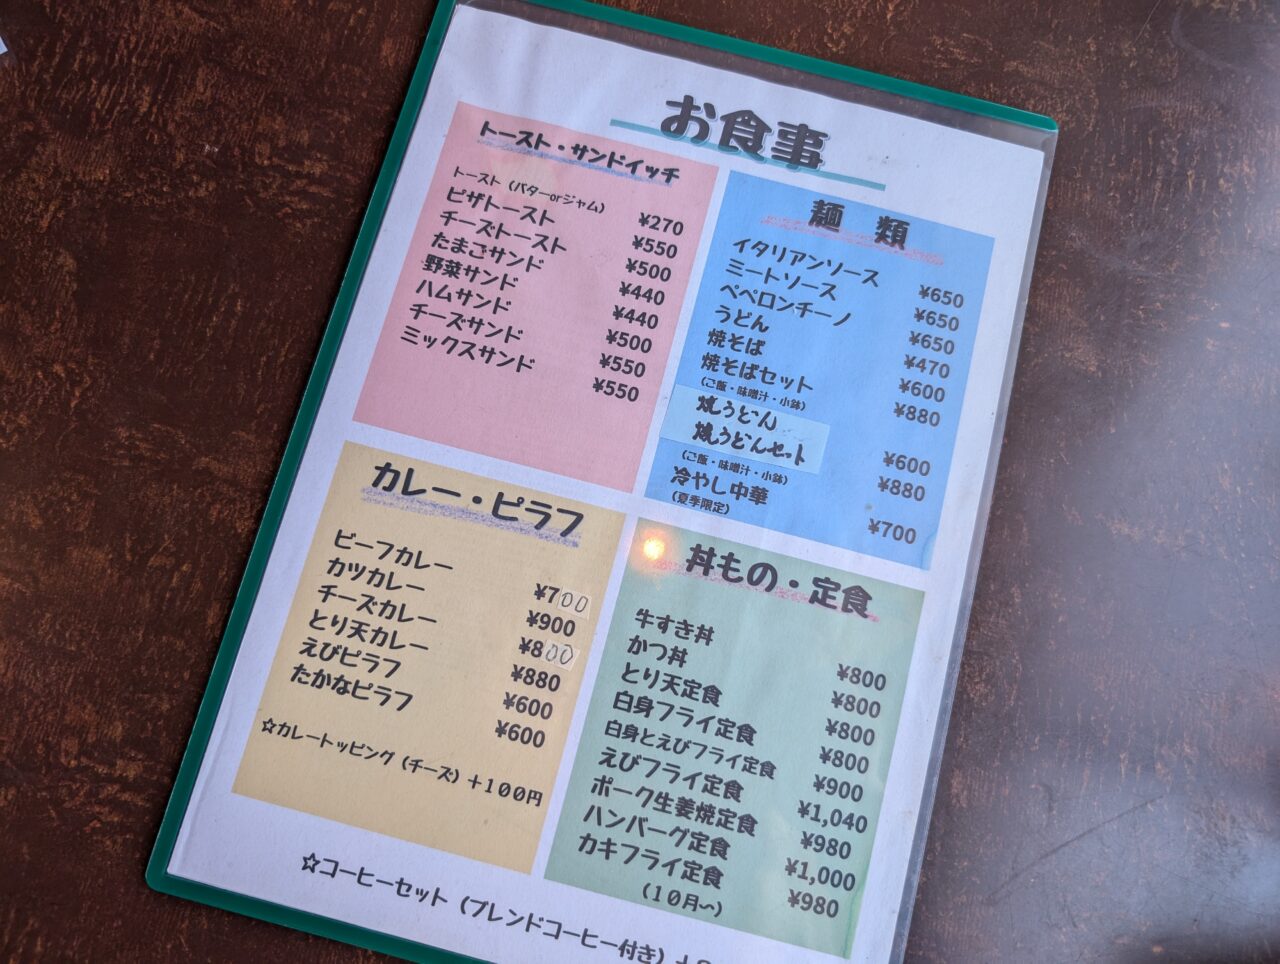 お食事
トースト・サンドイッチ
トースト（バターorジャム） ¥270
ピザトースト ¥550
チーズトースト ¥500
たまごサンド ¥440
野菜サンド ¥440
ハムサンド ¥500
チーズサンド ¥550
ミックスサンド ¥550
麺 類
イタリアンソース ¥650
ミートソース ¥650
ペペロンチーノ ¥650
うどん ¥470
焼そば ¥600
焼そばセット ¥880
（ご飯・味噌汁・小鉢）
焼うどん ¥600
焼うどんセット ¥880
（ご飯・味噌汁・小鉢）
冷やし中華 ¥700
（夏季限定）
カレー・ピラフ
ビーフカレー ¥700
カツカレー ¥900
チーズカレー ¥800
とり天カレー ¥880
えびピラフ ¥600
たかなピラフ ¥600
☆カレートッピング（チーズ）＋１００円
丼もの・定食
牛すき丼 ¥800
かつ丼 ¥800
とり天定食 ¥800
白身フライ定食 ¥800
白身とえびフライ定食 ¥900
えびフライ定食 ¥1,040
ポーク生姜焼定食 ¥980
ハンバーグ定食 ¥1,000
カキフライ定食 ¥980
（１０月〜）
☆コーヒーセット（ブレンドコーヒー付き）＋